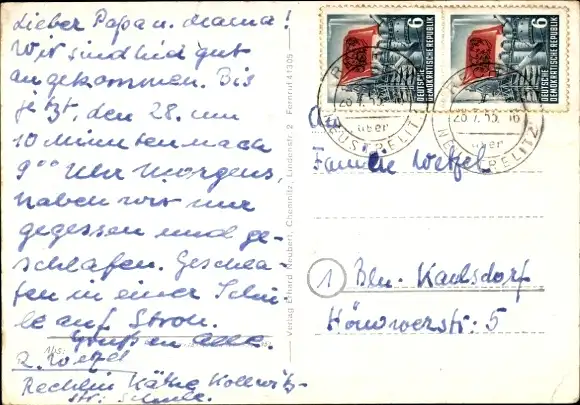 Lieber Papa u. Mama!
Wir sind hid gut
angekommen. Bis
jetzt, den 28. um
10 Minuten nach
9⁰⁰ Uhr Morgens,
haben wir nur
gegessen und ge-
schlafen. Geschla-
fen in einer Schu-
le auf Stroh.
Grüßen alle.
Abs:
R. Wezel
Rechlin Käthe Kollwitz-
str. Schule.
Verlag Erhard Neubert, Chemnitz, Lindenstr. 2 Fernruf 41305
DEUTSCHE DEMOKRATISCHE REPUBLIK 6
DEUTSCHE DEMOKRATISCHE REPUBLIK 6
28.7.55. 16
über
NEUSTRELITZ
28.7.55. 16
über
An
Familie Wetzel
1 Bln. Kaulsdorf
Hönowerstr. 5